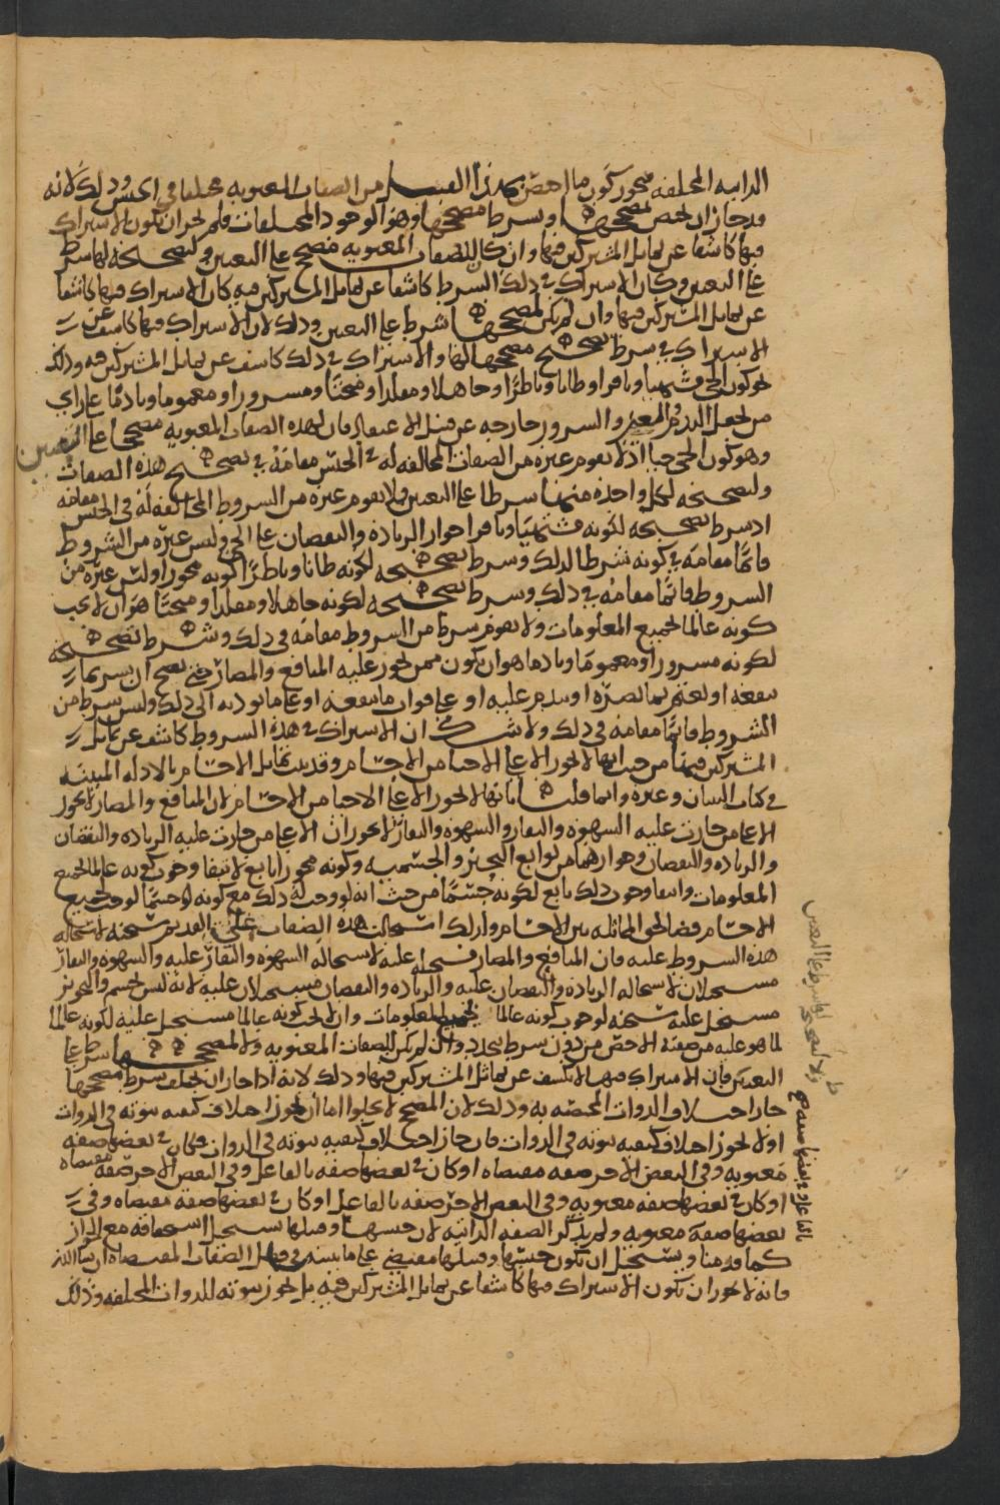 الذاتيه المختلفه فيجوز كون ما اختص بهذا القبيل من الصفات المعنويه مختلفا في الجنس وذلك لانه
قد جاز ان يختص بمصححها او بشرط مصححها وهو الوجود المختلفات فلم يجز ان يكون الاشتراك
فيها كاشفا عن تماثل المشتركين فيها وان كان للصفات المعنويه مصحح على التعيين ولتصحيحه لها شرط
على التعيين وكان الاشتراك في ذلك الشرط كاشفا عن تماثل المشتركين فيه كان الاشتراك فيها كاشفا
عن تماثل المشتركين فيها وان لم يكن لمصححها شرط على التعيين وذلك لان الاشتراك فيها كاشف عن
الاشتراك في شرط تصحيح مصححها لها والاشتراك في ذلك كاشف عن تماثل المشتركين فيه وذلك
نحو كون الحي مشتهيا ونافرا وظانا وناظرا وجاهلا ومقلدا ومبختا ومسرورا ومغموما ونادما على راي
من يجعل الندم والغم والسرور خارجه عن قبيل الاعتقاد فان لهذه الصفات المعنويه مصححا على التعيين
وهو كون الحي حيا اذ لا يقوم غيره من الصفات المخالفه له في الجنس مقامه في تصحيح هذه الصفات
ولتصحيحه لكل واحده منها شرطا على التعيين ولا يقوم غيره من الشروط المخالفه له في الجنس مقامه
اذ شرط تصحيحه لكونه مشتهيا ونافرا جواز الزياده والنقصان على الحي وليس غيره من الشروط
قائما مقامه في كونه شرطا لذلك وشرط تصحيحه لكونه ظانا وناظرا كونه مجوزا وليس غيره من
الشروط قائما مقامه في ذلك وشرط تصحيحه لكونه جاهلا ومقلدا ومبختا هو ان لا يجب
كونه عالما لجميع المعلومات ولا يقوم شرط من الشروط مقامه في ذلك وشرط تصحيحه
لكونه مسرورا ومغموما ونادما هو ان يكون ممن تجوز عليه المنافع والمضار حتى يصح ان يسر بما
ينفعه او يغتم بما يضره او يندم عليه او على فوات ما ينفعه او على ما يوديه الى ذلك وليس شرط من
الشروط قائما مقامه في ذلك ولا شك ان الاشتراك في هذه الشروط كاشف عن تماثل
المشتركين فيها من حيث انها لا تجوز الا على الاحيا من الاجسام وقد ثبت تماثل الاجسام بالادله المبينه
في كتاب البيان وغيره وانما قلنا بانها لا تجوز الا على الاحيا من الاجسام لان المنافع والمضار لا تجوز
الا على من جازت عليه الشهوه والنفار والشهوه والنفار لا تجوزان الا على من جازت عليه الزياده والنقصان
والزياده والنقصان وجوازهما من توابع التحيز والجسميه وكونه مجوزا تابع لانتفا وجوب كونه عالما لجميع
المعلومات وانتفا وجوب ذلك تابع لكونه جسما من حيث انه لو وجب له ذلك مع كونه جسما لوجب لجميع
الاجسام قضا لحق المماثله بين الاجسام ولذلك استحالت هذه الصفات على القديم سبحنه لاستحاله
هذه الشروط عليه فان المنافع والمضار مستحيله عليه لاستحاله الشهوه والنفار عليه والشهوه والنفار
مستحيلان لاستحاله الزياده والنقصان عليه والزياده والنقصان مستحيلان عليه لانه ليس بجسم والتجويز
مستحيل عليه سبحنه لوجوب كونه عالما لجميع المعلومات وان لا يجب كونه عالما مستحيل عليه لكونه عالما
لما هو عليه من صفته الاخص من دون شرط يتجدد وان لم يكن للصفات المعنويه ولا لمصححها شرط على
التعيين فان الاشتراك فيها لا يكشف عن تماثل المشتركين فيها وذلك لانه اذا جاز ان يختلف شرط مصححها
جاز اختلاف الذوات المختصه به وذلك لان المصحح لا يخلوا اما ان يجوز اختلاف كيفيه ثبوته في الذوات
او لا يجوز اختلاف كيفيه ثبوته في الذوات فان جاز اختلاف كيفيه ثبوته في الذوات فكان في بعضها صفه
معنويه وفي البعض الاخر صفه مقتضاه او كان في بعضها صفه بالفاعل وفي البعض الاخر صفه مقتضاه
او كان في بعضها صفه معنويه وفي البعض الاخر صفه بالفاعل او كان في بعضها صفه مقتضاه وفي
بعضها صفه معنويه ولم يذكر الصفه الذاتيه لان جنسها وقبيلها يستحيل استحقاقه مع الجواز
كما قدمنا ويستحيل ان يكون جنسها وقبيلها مقتضي على ما بينته في فصل الصفات المقتضاه ان شاء الله
فانه لا يجوز ان يكون الاشتراك فيها كاشفا عن تماثل المشتركين فيه بل يجوز ثبوته للذوات المختلفه وذلك